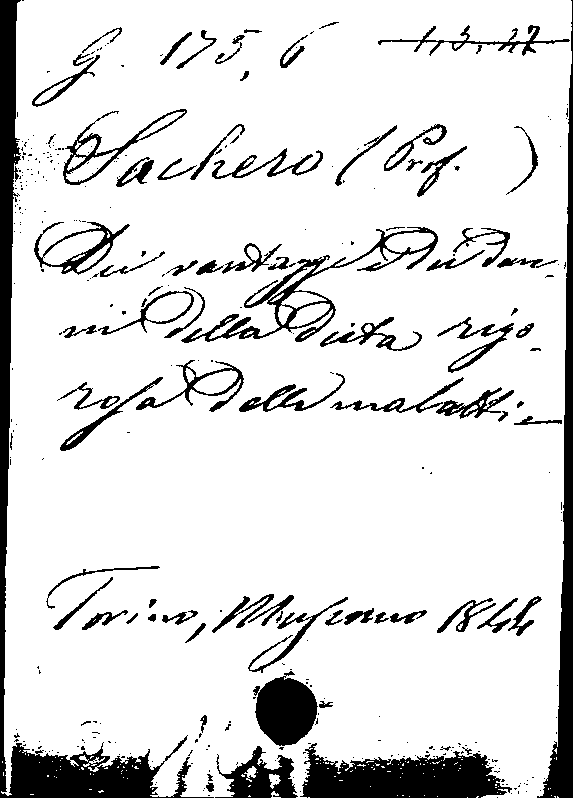 G. 175, 6 1, 3, 27
Sachero (Prof. )
Dei vantaggi e dei dan-
ni della dieta rigo-
rosa delle malatti-
Torino, Mussano 1844